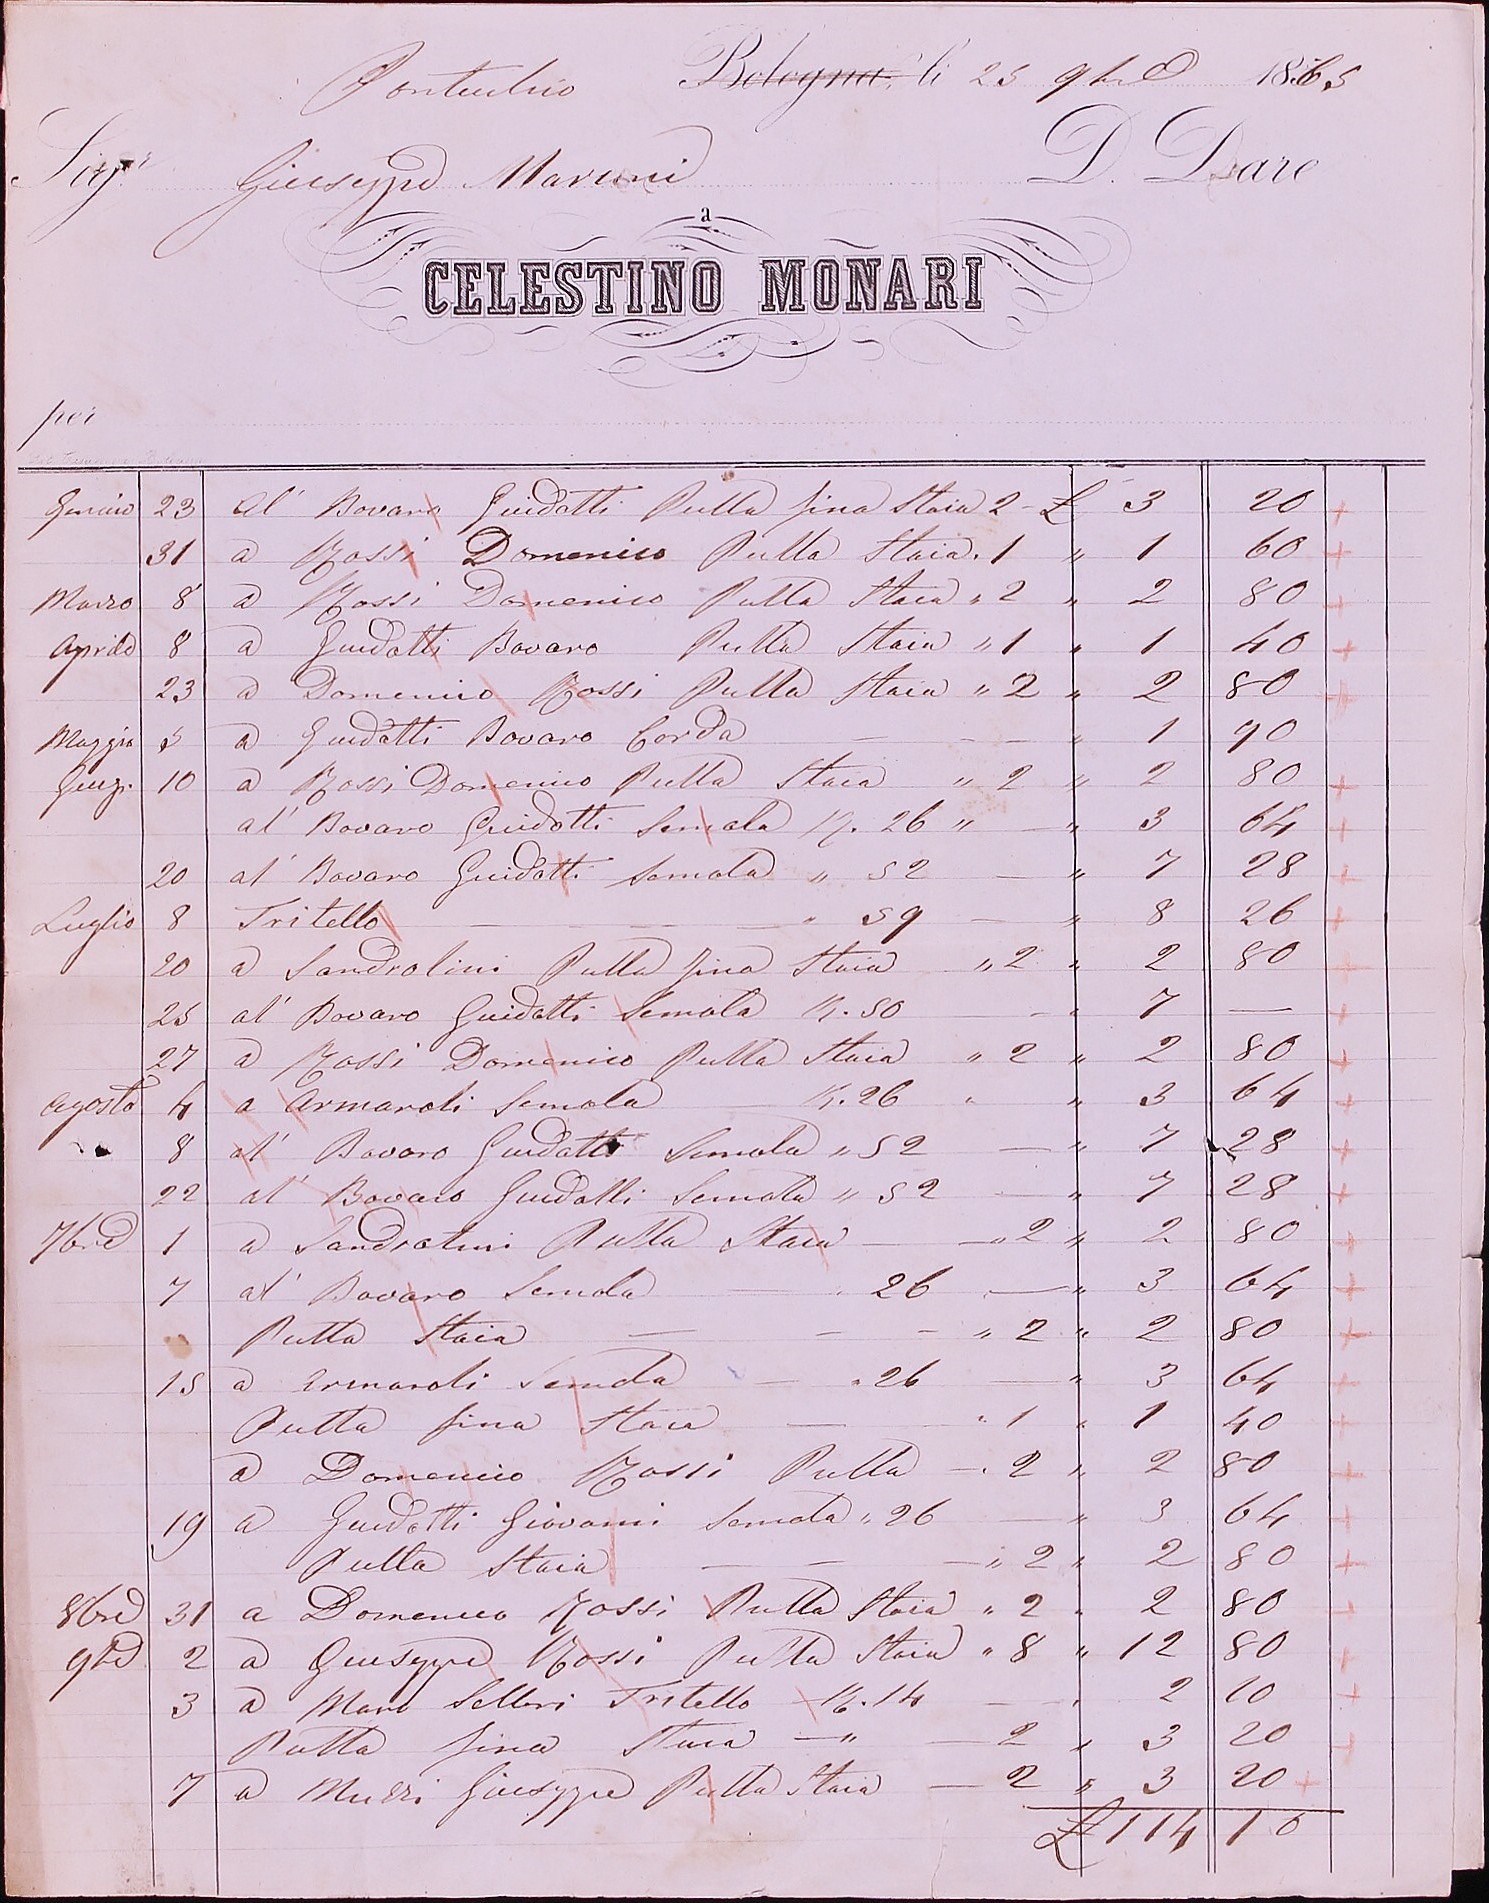 Pontecchio Bologna, li 25 9bre 1865
Sigr. Giuseppe Marconi D. Dare
a
CELESTINO MONARI
per
Genaio 23 al' Bovaro Guidotti Pulla fina Staia 2 - £ 3 20 +
31 a Rossi Domenico Pulla Staia " 1 " 1 60 +
Marzo 8 a Rossi Domenico Pulla Staia " 2 " 2 80 +
Aprile 8 a Guidotti Bovaro Pulla Staia " 1 " 1 40 +
23 a Domenico Rossi Pulla Staia " 2 " 2 80 +
Maggio 5 a Guidotti Bovaro Corda — — — " 1 90
Giug. 10 a Rossi Domenico Pulla Staia " 2 " 2 80 +
al' Bovaro Guidotti Semola K. 26 " — " 3 64 +
20 al' Bovaro Guidotti Semola " 52 — " 7 28 +
Luglio 8 Tritello — — — " 59 — " 8 26 +
20 a Sandrolini Pulla fina Staia " 2 " 2 80 +
25 al' Bovaro Guidotti Semola K. 50 - " 7 — +
27 a Rossi Domenico Pulla Staia " 2 " 2 80 +
Agosto 4 a Armaroli Semola K. 26 " " 3 64 +
8 al' Bovaro Guidotti Semola " 52 — " 7 28 +
22 al' Bovaro Guidotti Semola " 52 - " 7 28 +
7bre 1 a Sandrolini Pulla Staia — " 2 " 2 80 +
7 al' Bovaro Semola — " 26 — " 3 64 +
Pulla Staia — — — " 2 " 2 80 +
15 a Armaroli Semola — " 26 — " 3 64 +
Pulla fina Staia — " 1 " 1 40 +
a Domenico Rossi Pulla — " 2 " 2 80 +
19 a Guidotti Giovanni Semola " 26 — " 3 64 +
Pulla Staia — — — " 2 " 2 80 +
8bre 31 a Domenico Rossi Pulla Staia " 2 " 2 80 +
9bre 2 a Giuseppe Rossi Pulla Staia " 8 " 12 80 +
3 a Selleri Tritello K. 14 — - " 2 10 +
Pulla fina Staia — " — 2 " 3 20 +
7 a Muzzi Giuseppe Pulla Staia — 2 " 3 20 +
£ 114 10